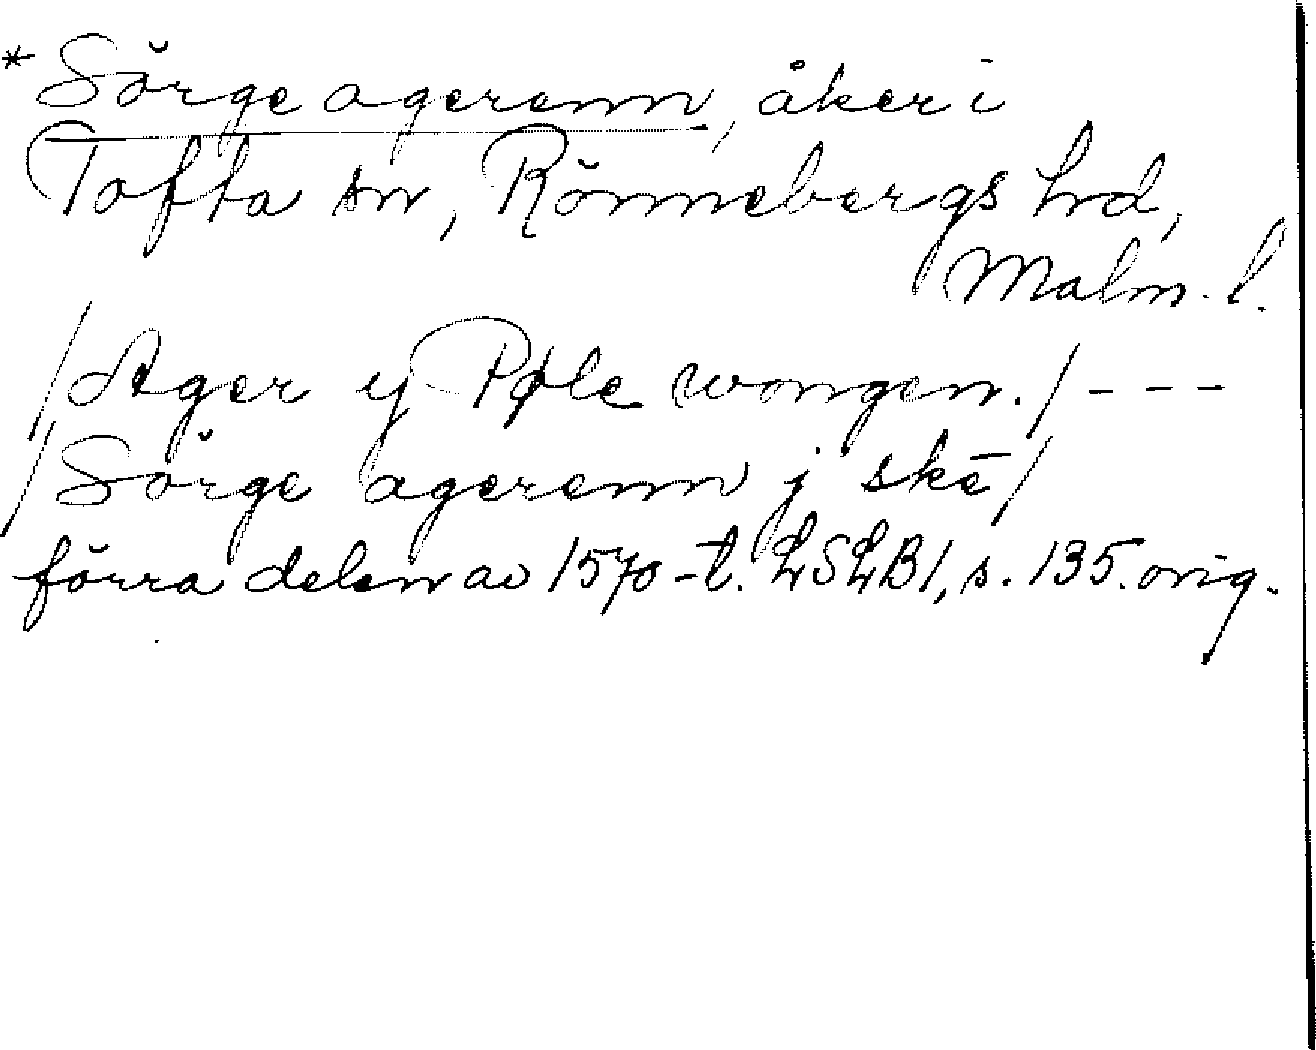 * Sörge agerenn, åker i
Tofta sn, Rönnebergs hd,
Malm. l.
/Ager y Pøle wongen./---
/Sörge agerenn j skē/
förra delen av 1570-t. LSLB1, s. 135. orig.